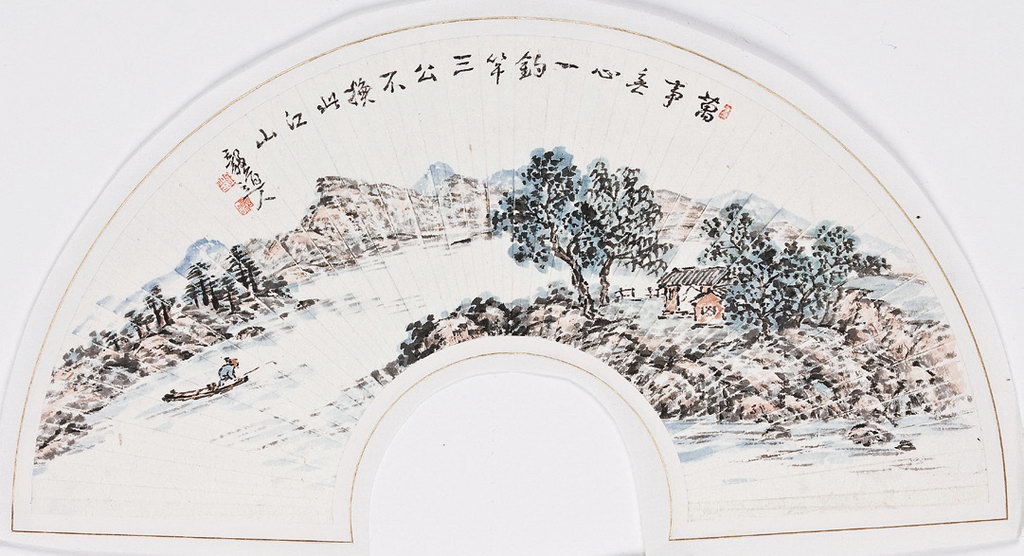 萬事無心一釣竿三公不換此江山